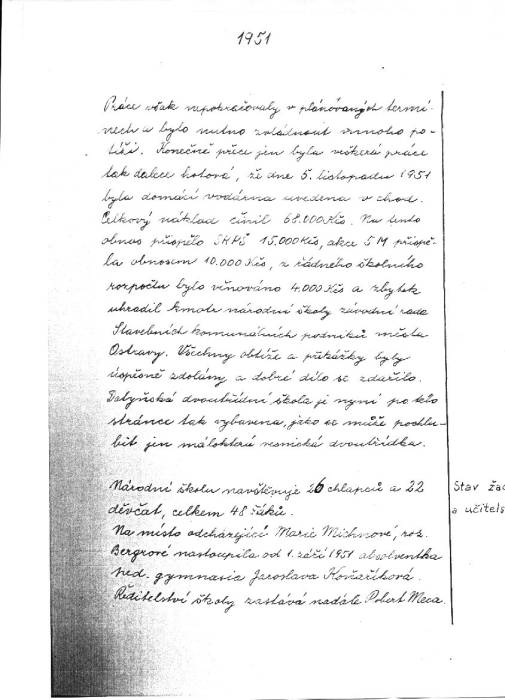 1951
Práce však nepokračovaly v plánovaných termí-
nech a bylo nutno zvládnout mnoho po-
tíží. Konečně přece jen byla veškerá práce
tak dalece hotová, že dne 5. listopadu 1951
byla domácí vodárna uvedena v chod.
Celkový náklad činil 68.000 Kčs. Na tento
obnos přispělo 15.000 Kčs, akce 5M přispě-
la obnosem 10.000 Kčs, z řádného školního
rozpočtu bylo věnováno 4.000 Kčs a zbytek
uhradil kmotr národní školy závodní rada
Stavebních komunálních podniků města
Ostravy. Všechny obtíže a překážky byly
úspěšně zdolány a dobré dílo se zdařilo.
dvoutřídní škola je nyní po této
stránce tak vybavena, jako se může pochlu-
bit jen málokterá vesnická dvoutřídka.
Národní školu navštěvuje 26 chlapců a 22
děvčat, celkem 48 žáků.
Stav žac
a učitels
Na místo odcházející Marie Michnové, roz.
Bergrové nastoupila od 1. září 1951 absolventka
ped. gymnasia Jaroslava Koňaříková.
Ředitelství školy zastává nadále Robert Meca.